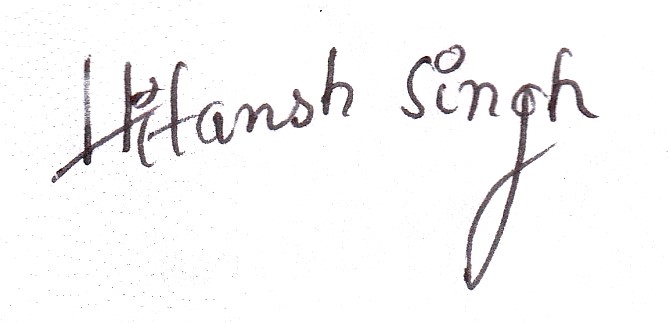 Hitansh Singh